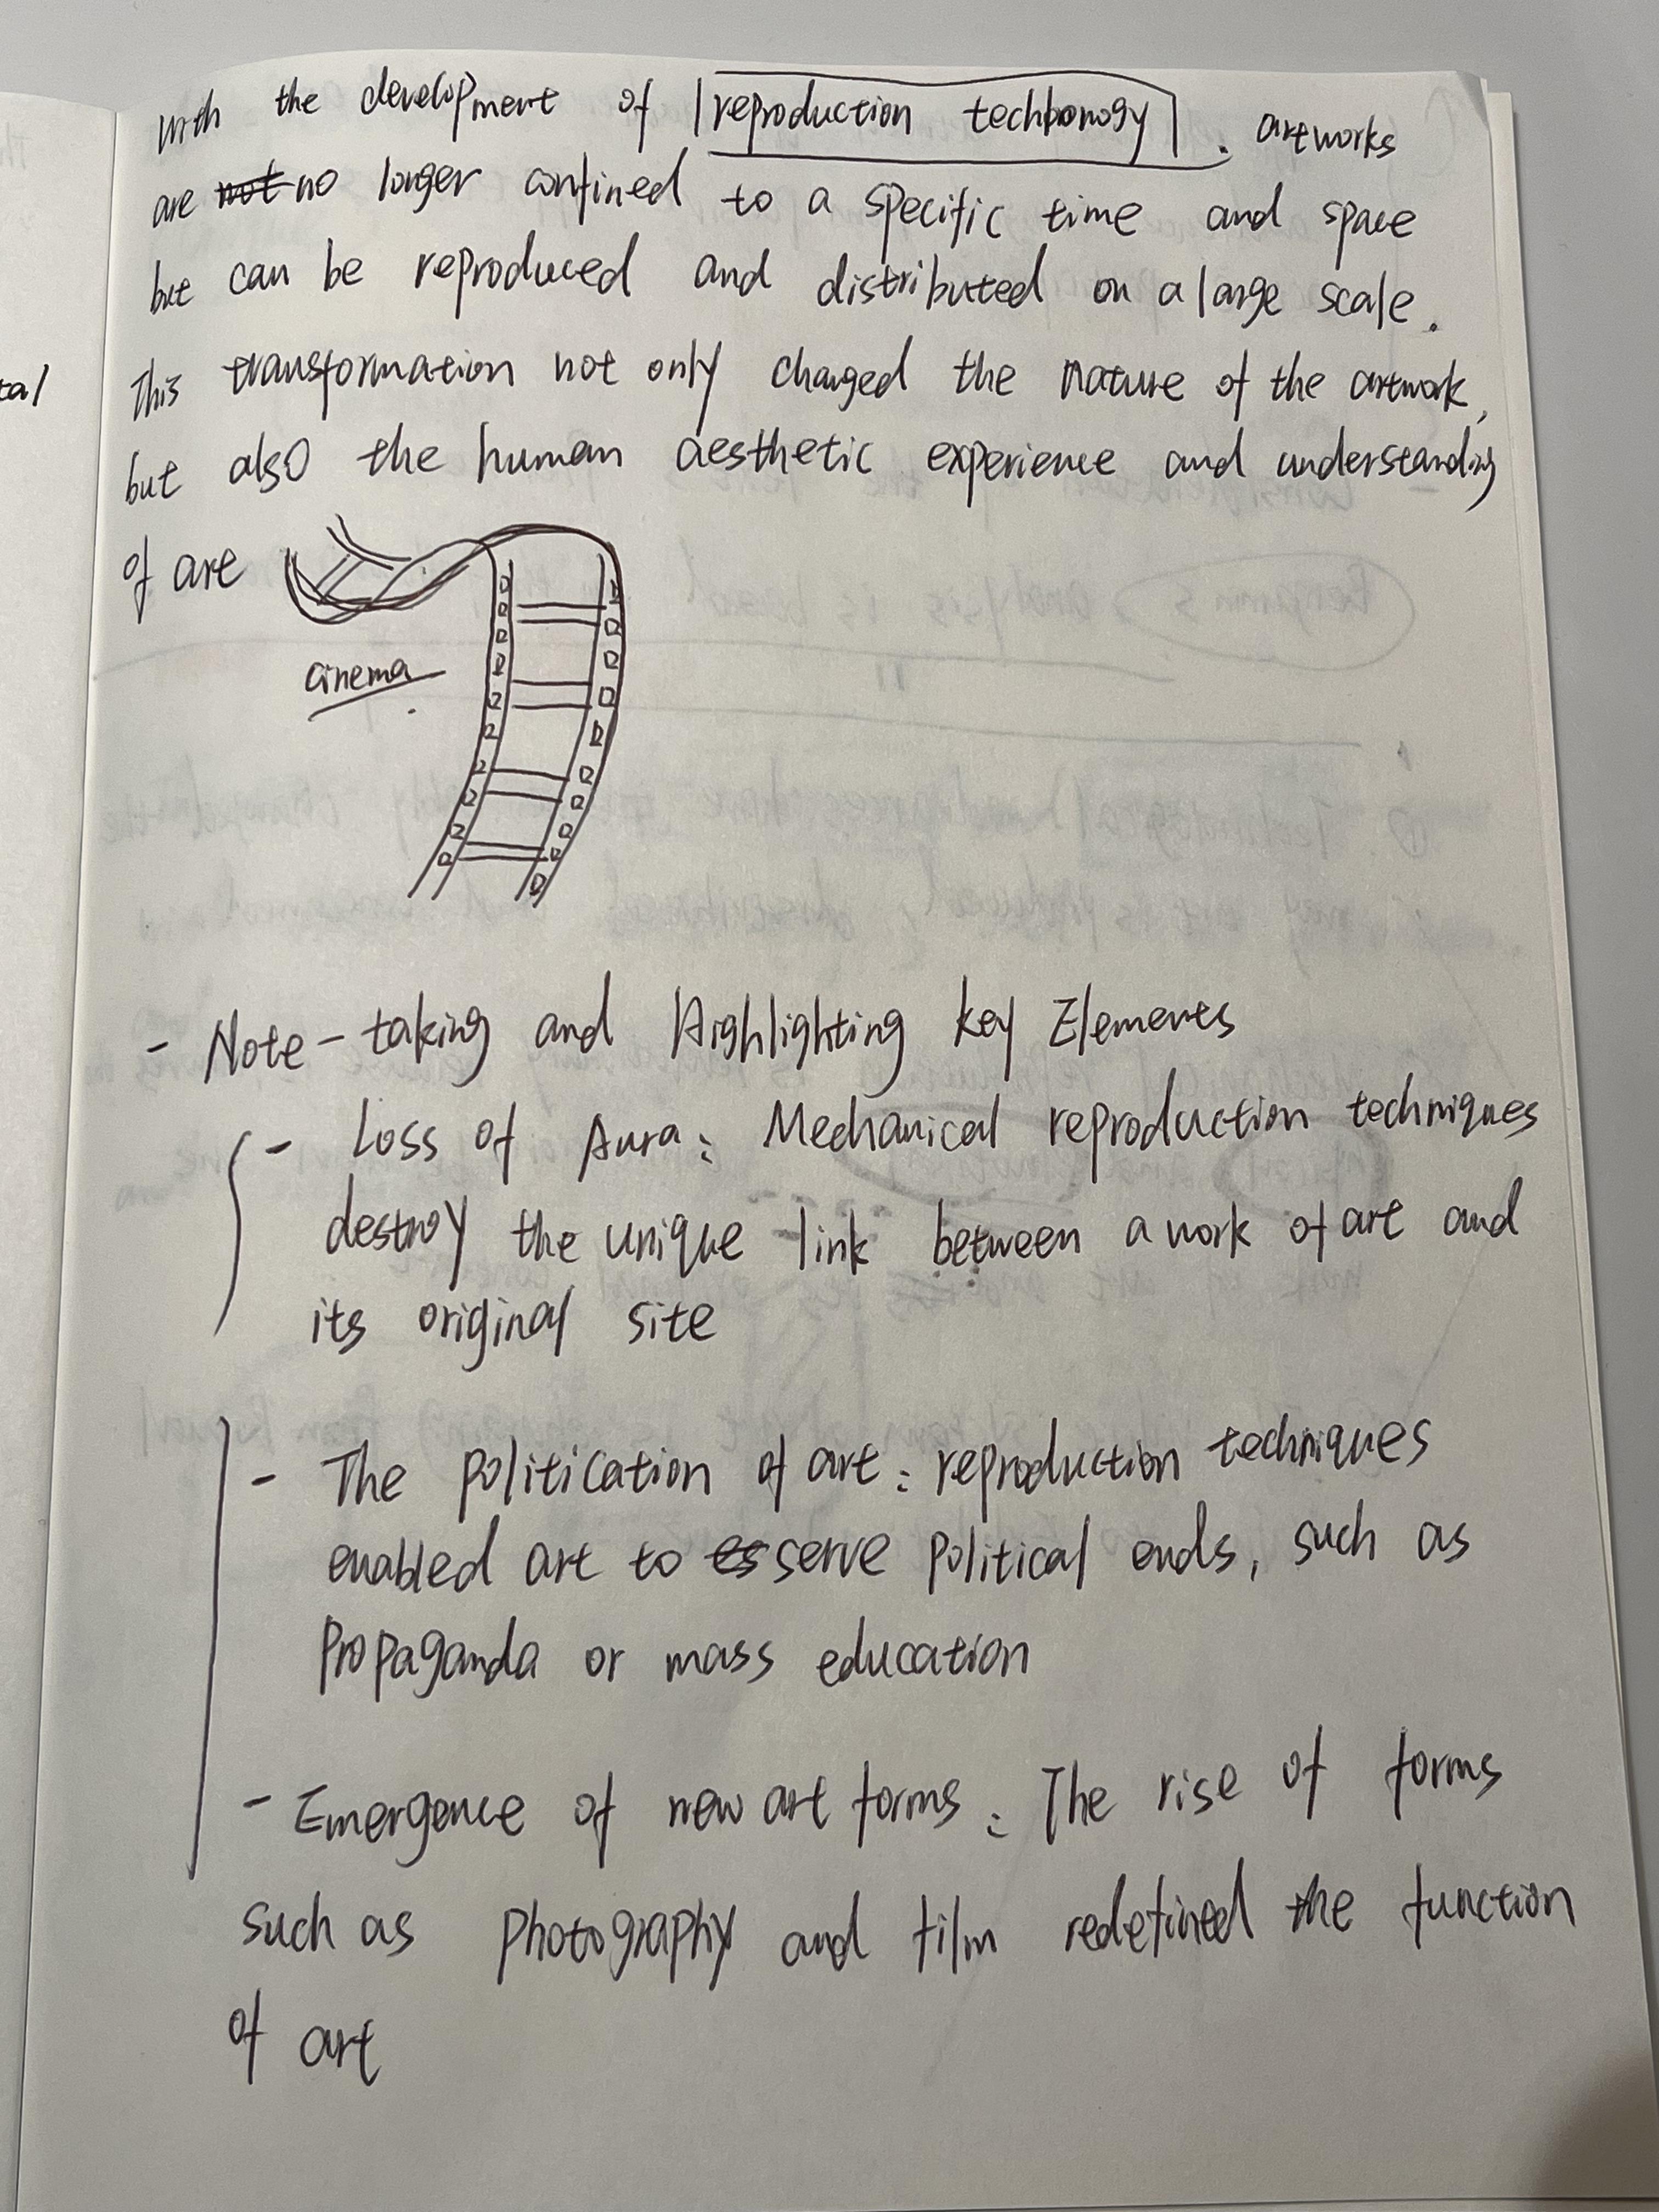 With the development of reproduction techbonogy. artworks
are not no longer confined to a specific time and space
but can be reproduced and distributed on a large scale.
This transformation not only changed the nature of the artwork,
tal
but also the human aesthetic experience and understanding
of art
cinema
- Note-taking and Highlighting key Elements
- Loss of Aura: Mechanical reproduction techniques
destroy the unique link between a work of art and
its original site
- The politication of art: reproduction techniques
enabled art to es serve political ends, such as
propaganda or mass education
- Emergence of new art forms: The rise of forms
such as photography and film redefined the function
of art